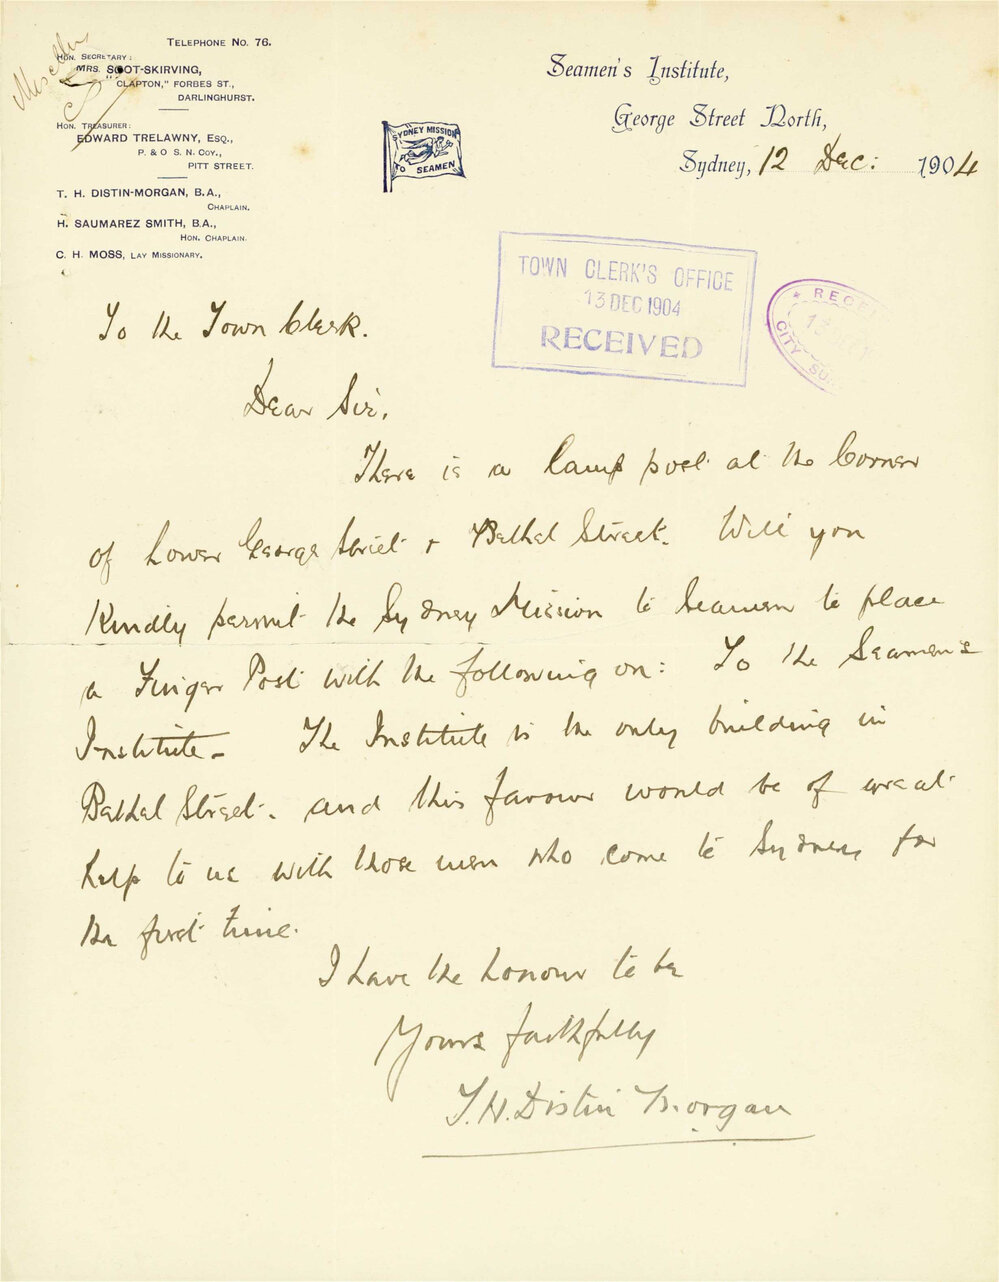 TELEPHONE NO. 76.
HON. SECRETARY:
MRS. SCOT-SKIRVING,
"CLAPTON," FORBES ST.,
DARLINGHURST.
HON. TREASURER:
EDWARD TRELAWNY, ESQ.,
P. & O S. N. COY.,
PITT STREET.
T. H. DISTIN-MORGAN, B.A.,
CHAPLAIN.
H. SAUMAREZ SMITH, B.A.,
HON. CHAPLAIN.
C. H. MOSS, LAY MISSIONARY.
SYDNEY MISSION
TO SEAMEN
Seamen's Institute,
George Street North,
Sydney, 12 Dec: 1904
TOWN CLERK'S OFFICE
13 DEC 1904
RECEIVED
CITY
To the Town Clerk.
Dear Sir,
There is a lamp post at the Corner
of Lower George Street & Bethel Street. Will you
Kindly permit the Sydney Mission to Seamen to place
a Finger Post with the following on: To the Seamen's
Institute - The Institute is the only building in
Bethel Street. and this favour would be of great
help to us with those men who come to Sydney for
the first time.
I have the honour to be
Yours faithfully
T. H. Distin Morgan